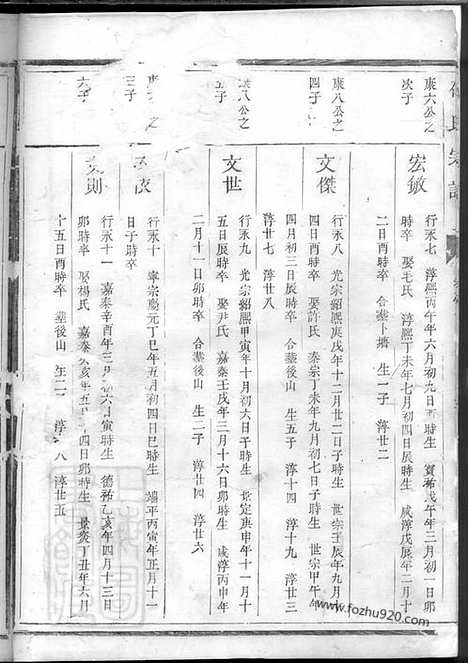 宗譜
康六公之
次子
宏敏
行永七 淳熙丙午年六月初九日酉時生 寳祐戊午年三月初一日卯
時卒 娶毛氏 淳熙丁未年七月初四日辰時生 咸淳戊辰年二月十
二日酉時卒 合塟卜塘 生一子 淳廿二
康八公之
四子
文傑
行永八 光宗紹熙庚戌年十二月廿二日子時生 世宗壬辰年九月十
四日酉時卒 娶許氏 秦宗丁未年九月初七日子時生 世宗甲午年
四月初三日辰時卒 合塟後山 生五子 淳十四 淳十九 淳廿三
淳廿七 淳廿八
康八公之
五子
文世
行永九 光宗紹熙甲寅年十月初六日午時生 景定庚申年十一月十
五日辰時卒 娶尹氏 嘉泰壬戌年三月十六日卯時生 咸淳丙申年
二月十一日卯時卒 合塟後山 生二子 淳廿四 淳廿六
三子
行永十 寧宗慶元丁巳年五月初四日巳時生 端平丙寅年正月十一
日子時卒
六子
文則
行永十一 嘉泰辛酉年三月初六日寅時生 德祐乙亥年四月十三日
卯時卒 娶楊氏 嘉泰癸亥年五月 四日卯時生 景炎丁丑年六月
十五日酉時卒 塟後山 生二 淳 八 淳廿五
www.fozhu920.com